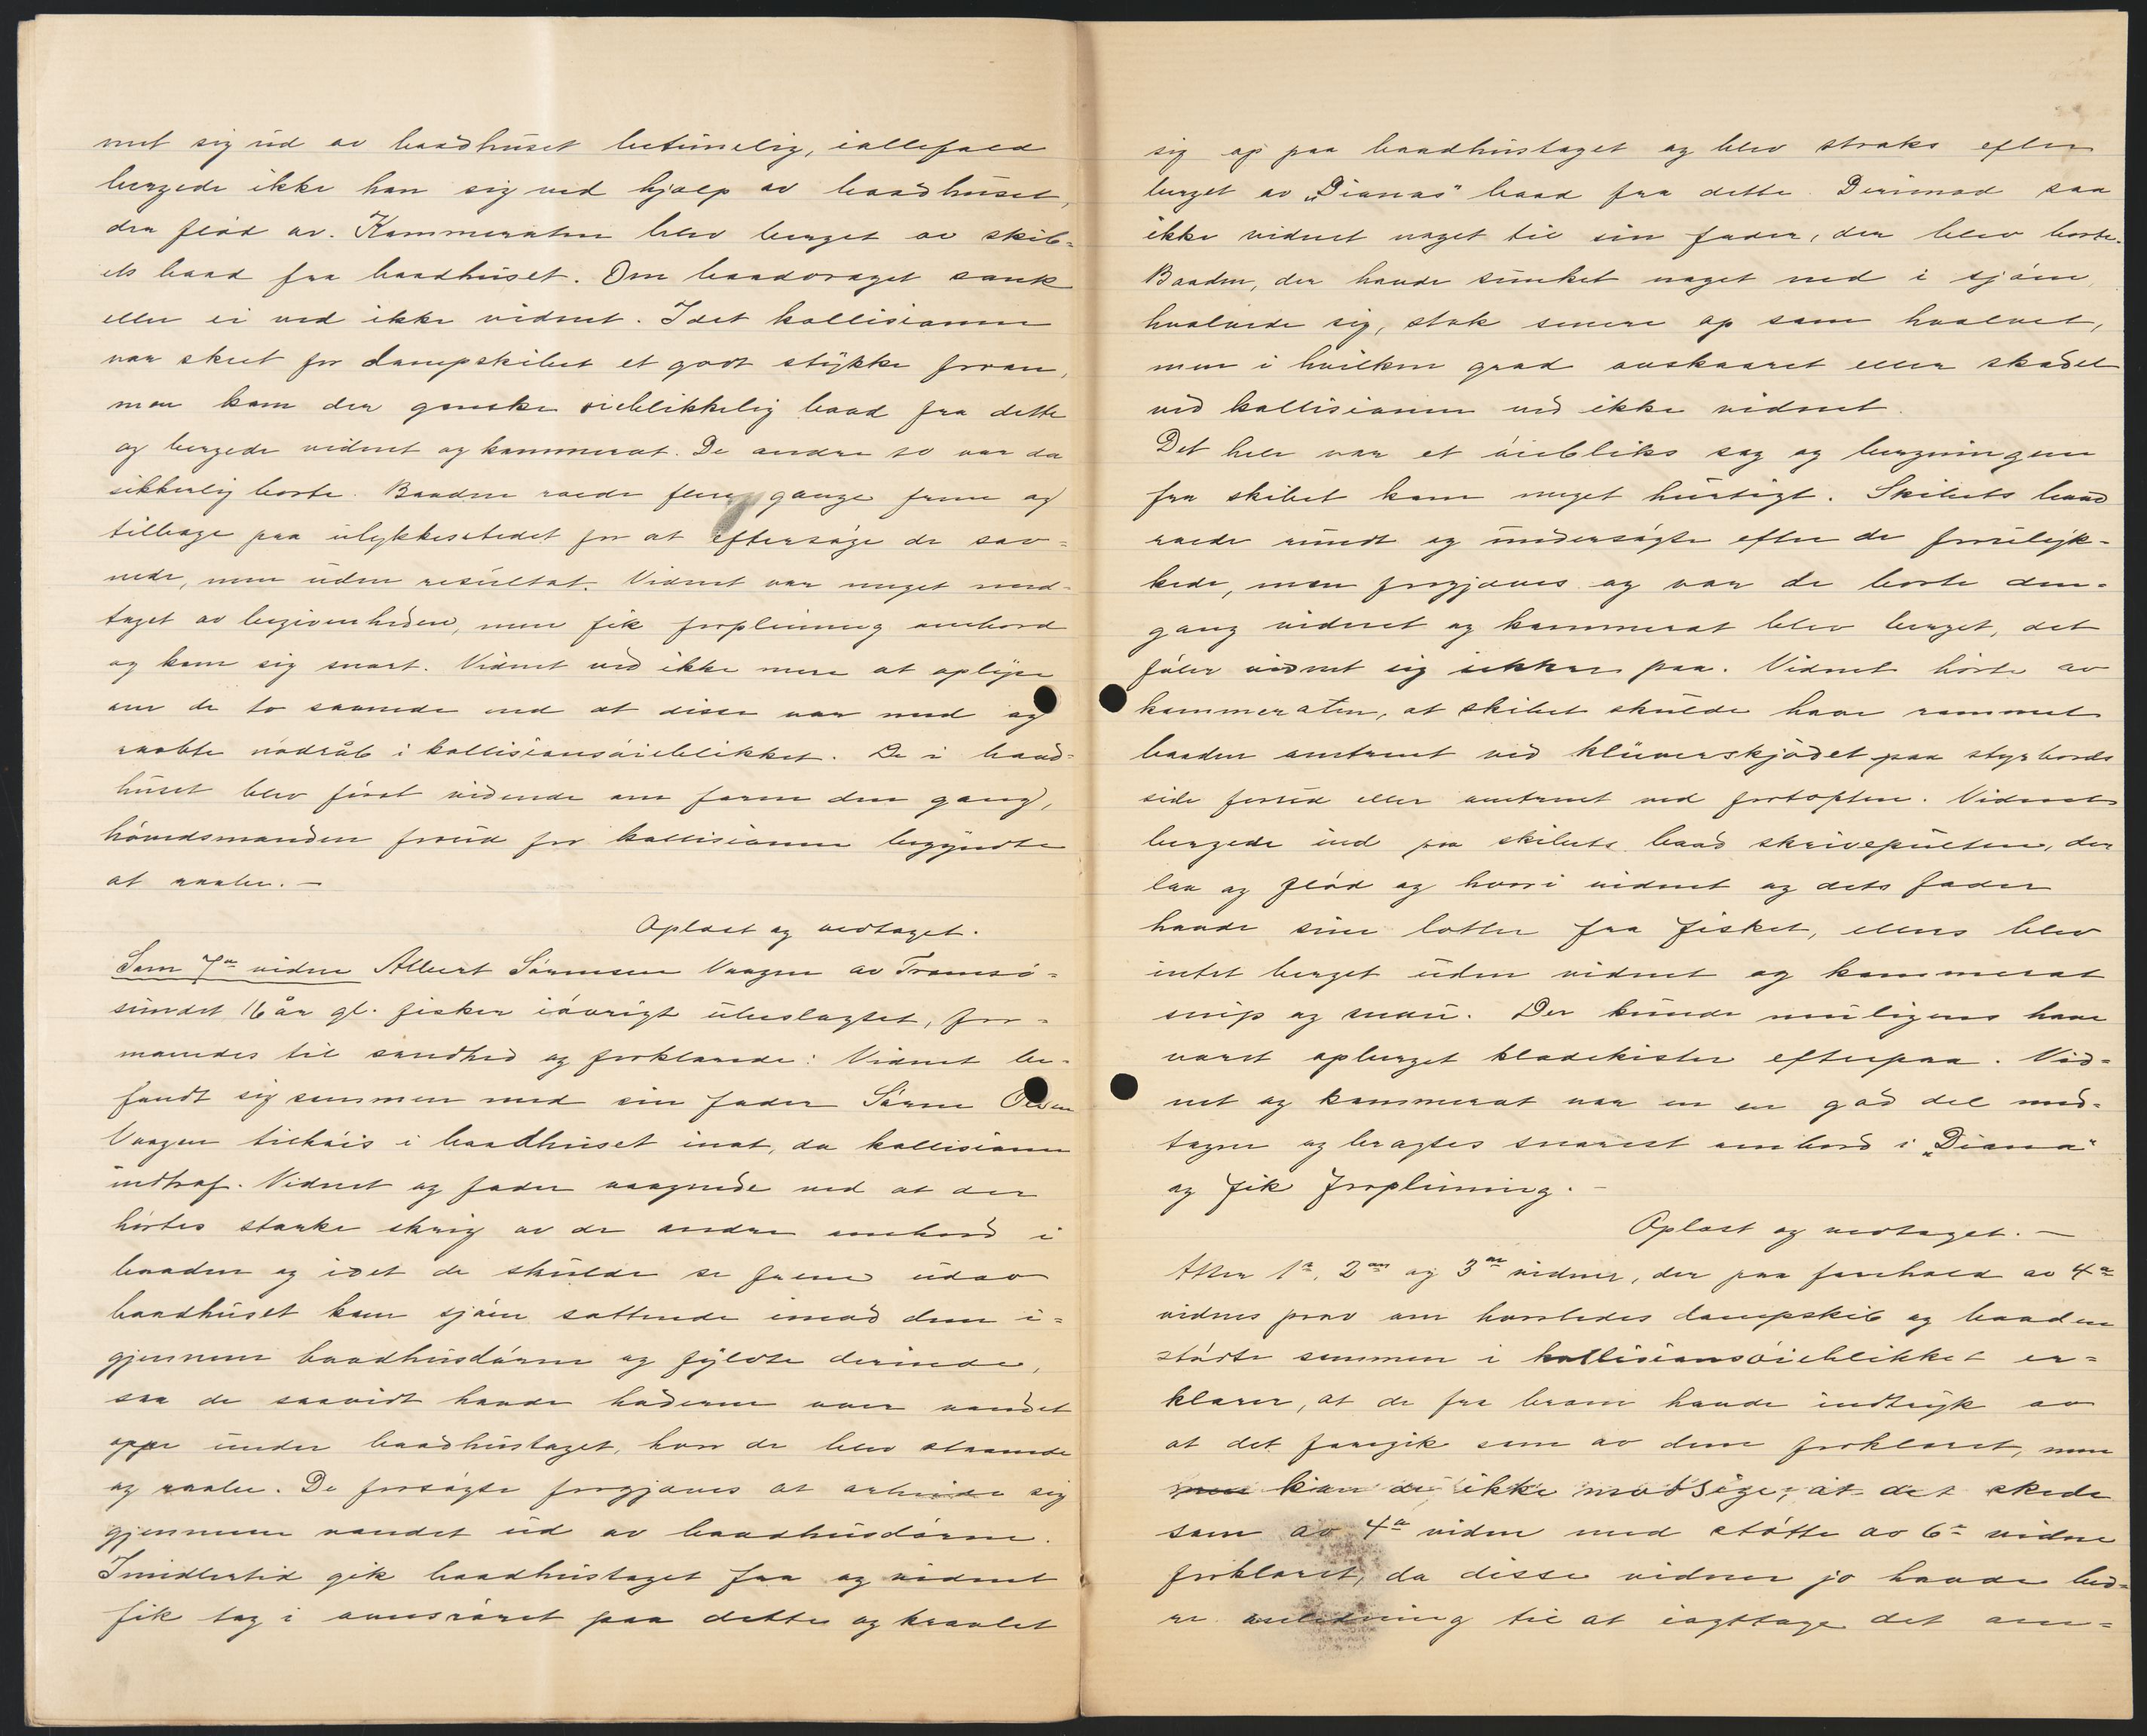 met sig ud av baadhuset betimelig, iallefald
bergede ikke han sig ved hjælp av baadhuset,
der flød av. Kammeraten blev berget av skib-
ets baad fra baadhuset. Om baadvraget sank
eller ei ved ikke vidnet. Idet kollisionen
var skeet for dampskibet et godt stykke foran,
men kom der ganske øieblikkelig baad fra dette
og bergede vidnet og kammerat. De andre to var da
sikkerlig borte. Baaden roede flere gange frem og
tilbage paa ulykkesstedet for at eftersøge de sav=
nede, men uden resultat. Vidnet var meget med-
taget av begivenheden, men fik forpleining ombord
og kom sig snart. Vidnet ved ikke mere at oplyse
om de to savnede end at disse var med og
raabte nødråb i kollisionsøieblikket. De i baad=
huset blev først vidende om faren den gang,
høvedsmanden forud for kollisionen begyndte
at raabe. —
Oplæst og vedtaget.
Som 7de vidne Albert Sørensen Vaagen av Tromsø-
sundet 16 år gl. fisker iøvrigt ubeslægtet, for-
manedes til sandhed og forklarede: Vidnet be-
fandt sig sammen med sin fader Søren Olsen
Vaagen tilkøis i baadhuset inat, da kollisionen
indtraf. Vidnet og fader vaagnede ved at der
hørtes stærke skrig av de andre ombord i
baaden og idet de skulde se frem udav
baadhuset kom sjøen sættende imod dem i=
gjennem baadhusdøren og fyldte derinde,
saa de saavidt havde hoderne over vandet
oppe under baadhustaget, hvor de blev staaende
og raabe. De forsøgte forgjæves at arbeide sig
gjennem vandet ud av baadhusdøren.
Imidlertid gik baadhustaget fra og vidnet
fik tag i ovnsrøret paa dette og kravlet
sig op paa baadhustaget og blev straks efter
berget av „Dianas" baad fra dette. Derimod saa
ikke vidnet noget til sin fader, der blev borte.
Baaden, der havde sunket noget ned i sjøen,
hvalvede sig, stak senere op som hvalvet,
men i hvilken grad avskaaret eller skadet
ved kollisionen ved ikke vidnet.
Det hele var et øiebliks sag og bergningen
fra skibet kom meget hurtigt. Skibets baad
roede rundt og undersøgte efter de forulyk-
kede, men forgjæves og var de borte den-
gang vidnet og kammerat blev berget, det
føler vidnet sig sikker paa. Vidnet hørte av
kammeraten, at skibet skulde have rammet
baaden omtrent ved klüverskjødet paa styrbords
side forud eller omtrent ved fortoften. Vidnet
bergede ind paa skibets baad skrivepulten, der
laa og flød og hvori vidnet og dets fader
havde sine lotter fra fisket, ellers blev
intet berget uden vidnet og kammerat
snip og snau. Der kunde muligens have
været opberget klædekister efterpaa. Vid=
net og kammerat var en en god del med-
tagen og bragtes snarest ombord i „Diana"
og fik forpleining. —
Oplæst og vedtaget. —
Atter 1te, 2det og 3die vidner, der paa forehold av 4de
vidnes prov om hvorledes dampskib og baaden
stødte sammen i kollisionsøieblikket er-
klærer, at de fra broen havde indtryk av
at det foregik som av dem forklaret, men
men kan de ikke modsige, at det skede
som av 4de vidne med støtte av 6te vidne
forklaret, da disse vidner jo havde bed-
re anledning til at iagttage det om=